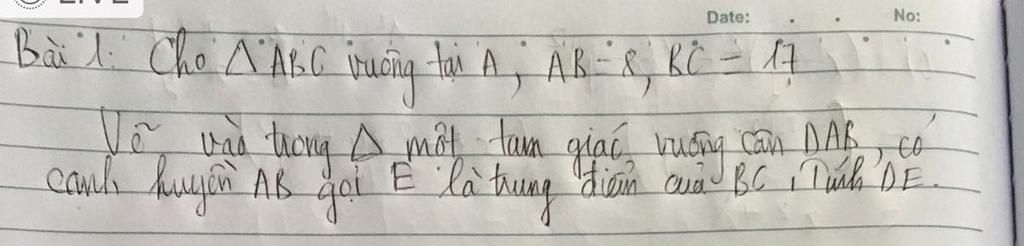 LIVE
Date: . . No:
Bài 1: Cho △ ABC vuông tại A, AB = 8, BC = 17
Vẽ vào trong △ một tam giác vuông cân DAB, có
cạnh huyền AB gọi E là trung điểm của BC, Tính DE.